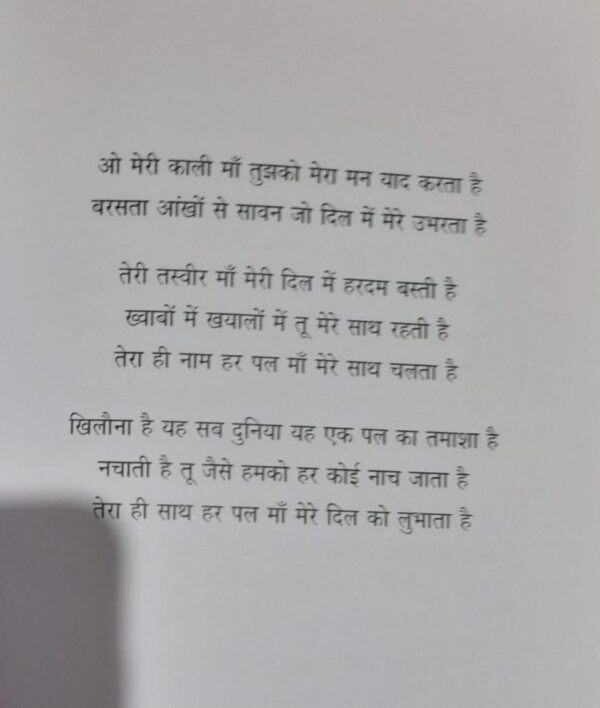 ओ मेरी काली माँ तुझको मेरा मन याद करता है
बरसता आंखों से सावन जो दिल में मेरे उभरता है
तेरी तस्वीर माँ मेरी दिल में हरदम बस्ती है
ख्वाबों में खयालों में तू मेरे साथ रहती है
तेरा ही नाम हर पल माँ मेरे साथ चलता है
खिलौना है यह सब दुनिया यह एक पल का तमाशा है
नचाती है तू जैसे हमको हर कोई नाच जाता है
तेरा ही साथ हर पल माँ मेरे दिल को लुभाता है